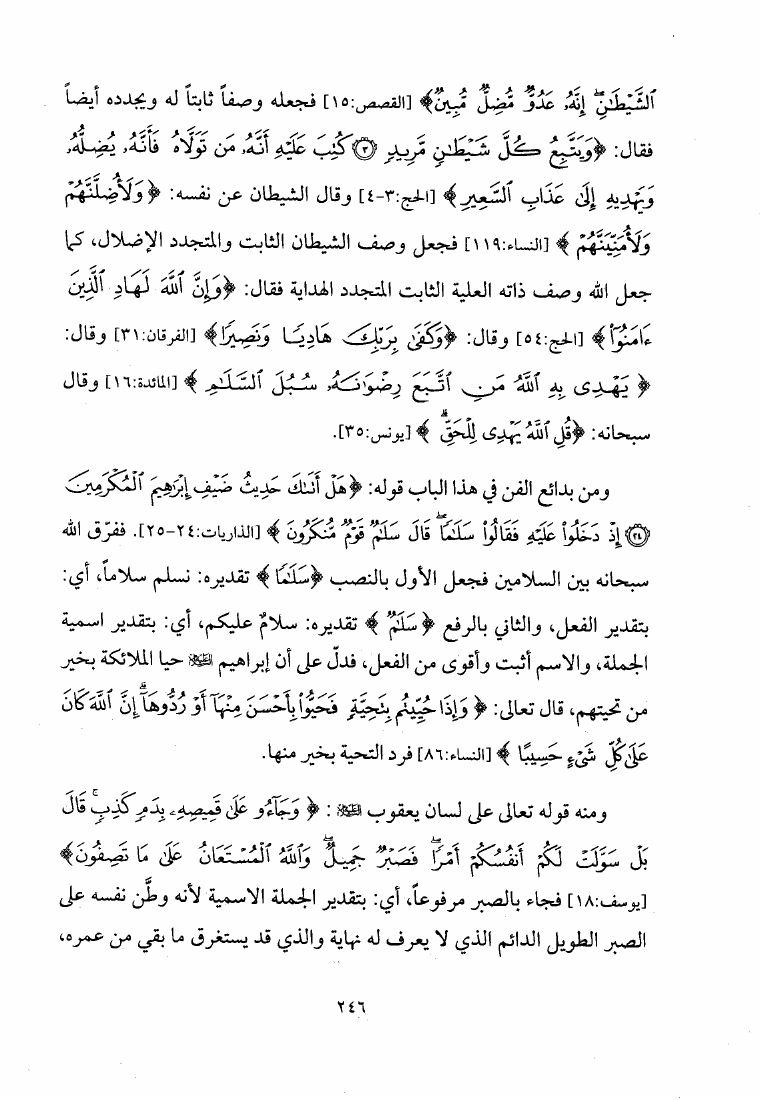 ٱلشَّيْطَـٰنِۖ إِنَّهُۥ عَدُوٌّ مُّضِلٌّ مُّبِينٌ﴾ [القصص:١٥] فجعله وصفاً ثابتاً له ويجدده أيضاً
فقال: ﴿وَيَتَّبِعُ كُلَّ شَيْطَـٰنٍ مَّرِيدٍ ۝٣ كُتِبَ عَلَيْهِ أَنَّهُۥ مَن تَوَلَّاهُ فَأَنَّهُۥ يُضِلُّهُۥ
وَيَهْدِيهِ إِلَىٰ عَذَابِ ٱلسَّعِيرِ﴾ [الحج:٣-٤] وقال الشيطان عن نفسه: ﴿وَلَأُضِلَّنَّهُمْ
وَلَأُمَنِّيَنَّهُمْ﴾ [النساء:١١٩] فجعل وصف الشيطان الثابت والمتجدد الإضلال، كما
جعل الله وصف ذاته العلية الثابت المتجدد الهداية فقال: ﴿وَإِنَّ ٱللَّهَ لَهَادِ ٱلَّذِينَ
ءَامَنُوٓا۟﴾ [الحج:٥٤] وقال: ﴿وَكَفَىٰ بِرَبِّكَ هَادِيًا وَنَصِيرًا﴾ [الفرقان:٣١] وقال:
﴿يَهْدِى بِهِ ٱللَّهُ مَنِ ٱتَّبَعَ رِضْوَٰنَهُۥ سُبُلَ ٱلسَّلَـٰمِ﴾ [المائدة:١٦] وقال
سبحانه: ﴿قُلِ ٱللَّهُ يَهْدِى لِلْحَقِّۗ﴾ [يونس:٣٥].
ومن بدائع الفن في هذا الباب قوله: ﴿هَلْ أَتَىٰكَ حَدِيثُ ضَيْفِ إِبْرَٰهِيمَ ٱلْمُكْرَمِينَ
۝٢٤ إِذْ دَخَلُوا۟ عَلَيْهِ فَقَالُوا۟ سَلَـٰمًاۖ قَالَ سَلَـٰمٌ قَوْمٌ مُّنكَرُونَ﴾ [الذاريات:٢٤-٢٥]. ففرّق الله
سبحانه بين السلامين فجعل الأول بالنصب ﴿سَلَـٰمًا﴾ تقديره: نسلم سلاماً، أي:
بتقدير الفعل، والثاني بالرفع ﴿سَلَـٰمٌ﴾ تقديره: سلامٌ عليكم، أي: بتقدير اسمية
الجملة، والاسم أثبت وأقوى من الفعل، فدلّ على أن إبراهيم ﷺ حيا الملائكة بخير
من تحيتهم، قال تعالى: ﴿وَإِذَا حُيِّيتُم بِتَحِيَّةٍ فَحَيُّوا۟ بِأَحْسَنَ مِنْهَآ أَوْ رُدُّوهَآۗ إِنَّ ٱللَّهَ كَانَ
عَلَىٰ كُلِّ شَىْءٍ حَسِيبًا﴾ [النساء:٨٦] فرد التحية بخير منها.
ومنه قوله تعالى على لسان يعقوب ﷺ: ﴿وَجَآءُو عَلَىٰ قَمِيصِهِۦ بِدَمٍ كَذِبٍۚ قَالَ
بَلْ سَوَّلَتْ لَكُمْ أَنفُسُكُمْ أَمْرًاۖ فَصَبْرٌ جَمِيلٌۖ وَٱللَّهُ ٱلْمُسْتَعَانُ عَلَىٰ مَا تَصِفُونَ﴾
[يوسف:١٨] فجاء بالصبر مرفوعاً، أي: بتقدير الجملة الاسمية لأنه وطَّن نفسه على
الصبر الطويل الدائم الذي لا يعرف له نهاية والذي قد يستغرق ما بقي من عمره،
٢٤٦